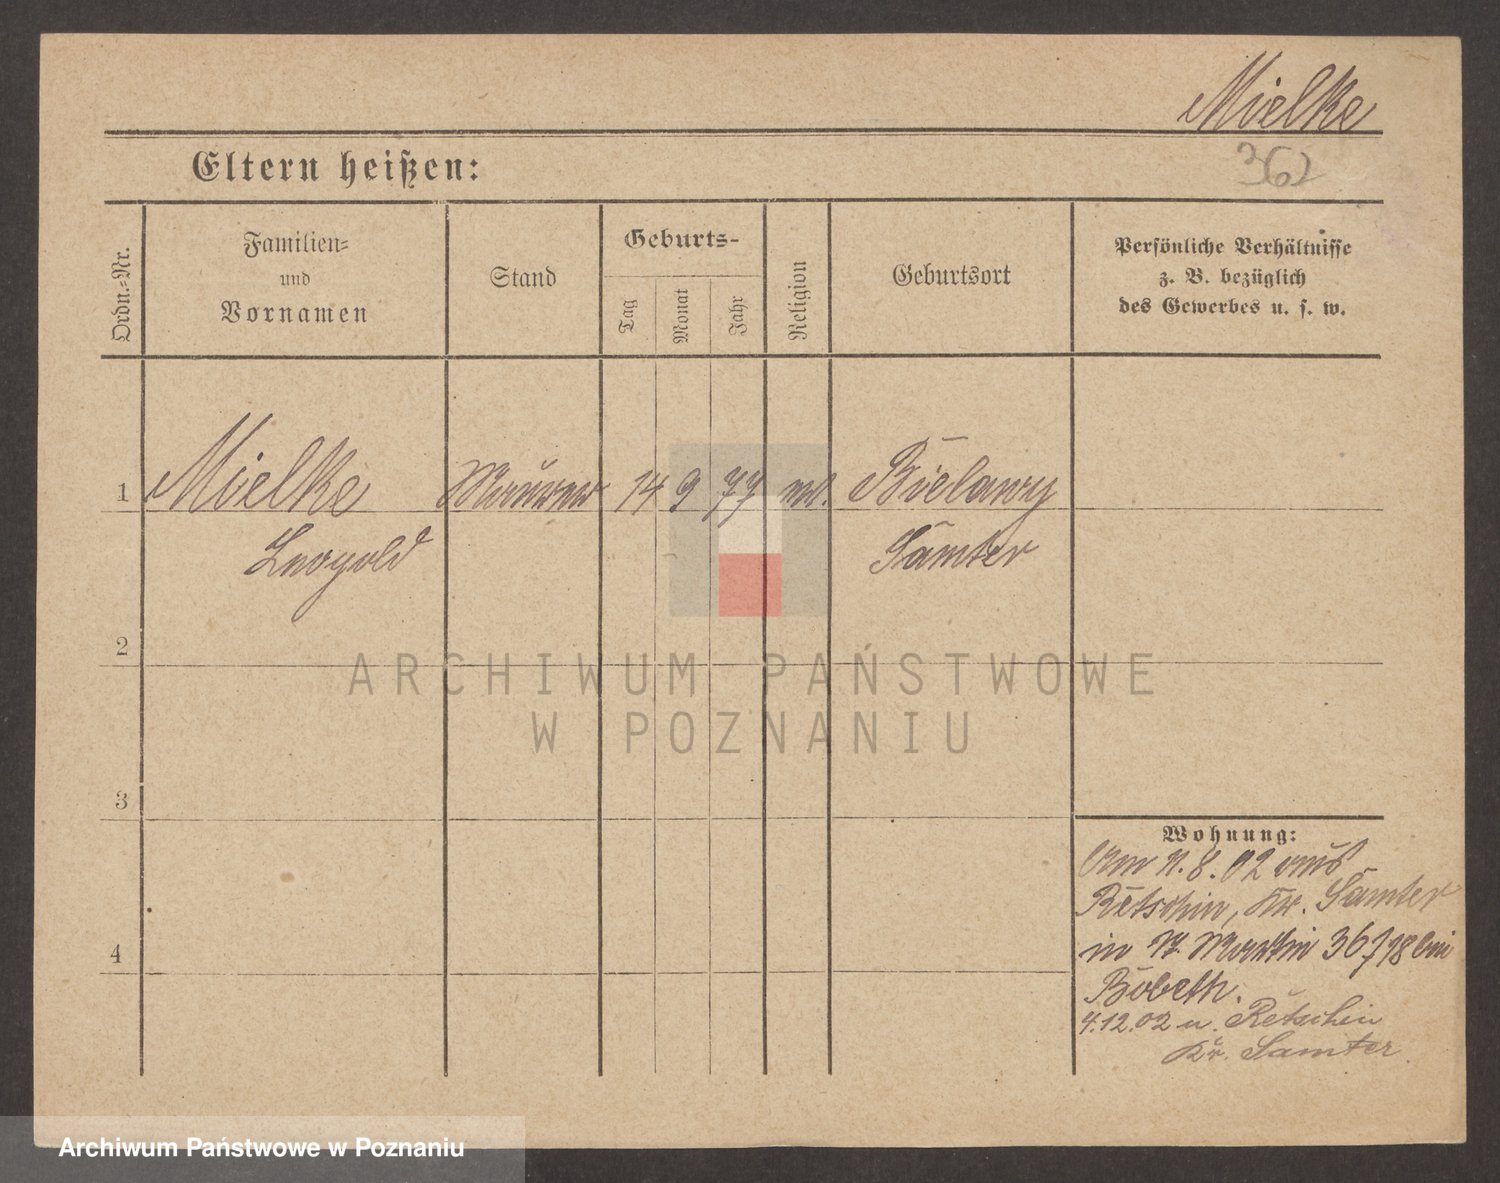 Mielke
362
Eltern heißen:
Ordn.-Nr.
Familien-
und
Vornamen
Stand
Geburts-
Tag
Monat
Jahr
Religion
Geburtsort
Persönliche Verhältnisse
z. B. bezüglich
des Gewerbes u. s. w.
1 Mielke Maurer 14 9 77 ev. Bielawy
Leopold Samter
2
3
4
Wohnung:
Am 11.8.02 aus
Retschin, Kr. Samter
in St. Martin 36/ bei
Bobeth.
4.12.02 n. Retschin
Kr. Samter.
ARCHIWUM PAŃSTWOWE
W POZNANIU
Archiwum Państwowe w Poznaniu